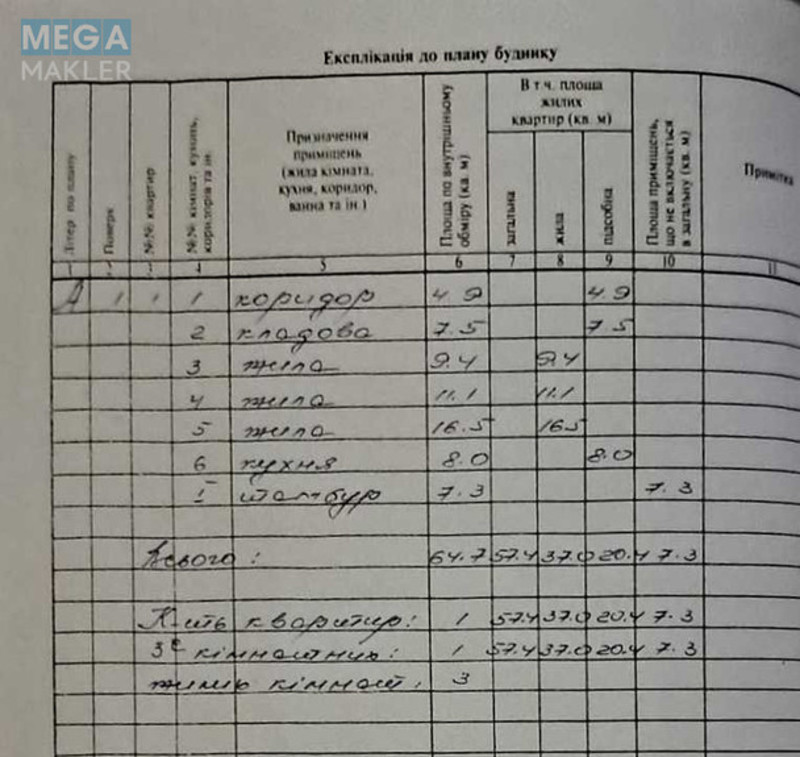 MEGA
MAKLER
Експлікація до плану будинку
Літер по плану
Поверх
№№ квартир
№№ кімнат, кухонь, коридорів та ін.
Призначення
приміщень
(жила кімната,
кухня, коридор,
ванна та ін.)
Площа по внутрішньому
обміру (кв. м)
В т.ч. площа
жилих
квартир (кв. м)
загальна
жила
підсобна
Площа приміщень,
що не включається
в загальну (кв. м)
Примітка
1 2 3 4 5 6 7 8 9 10 11
А 1 1 1 коридор 4.9 4.9
2 кладова 7.5 7.5
3 жила 9.4 9.4
4 жила 11.1 11.1
5 жила 16.5 16.5
6 кухня 8.0 8.0
1 тамбур 7.3 7.3
Всього: 64.7 57.4 37.0 20.4 7.3
К-ить квартир: 1 57.4 37.0 20.4 7.3
3х кімнатних: 1 57.4 37.0 20.4 7.3
жилих кімнат: 3